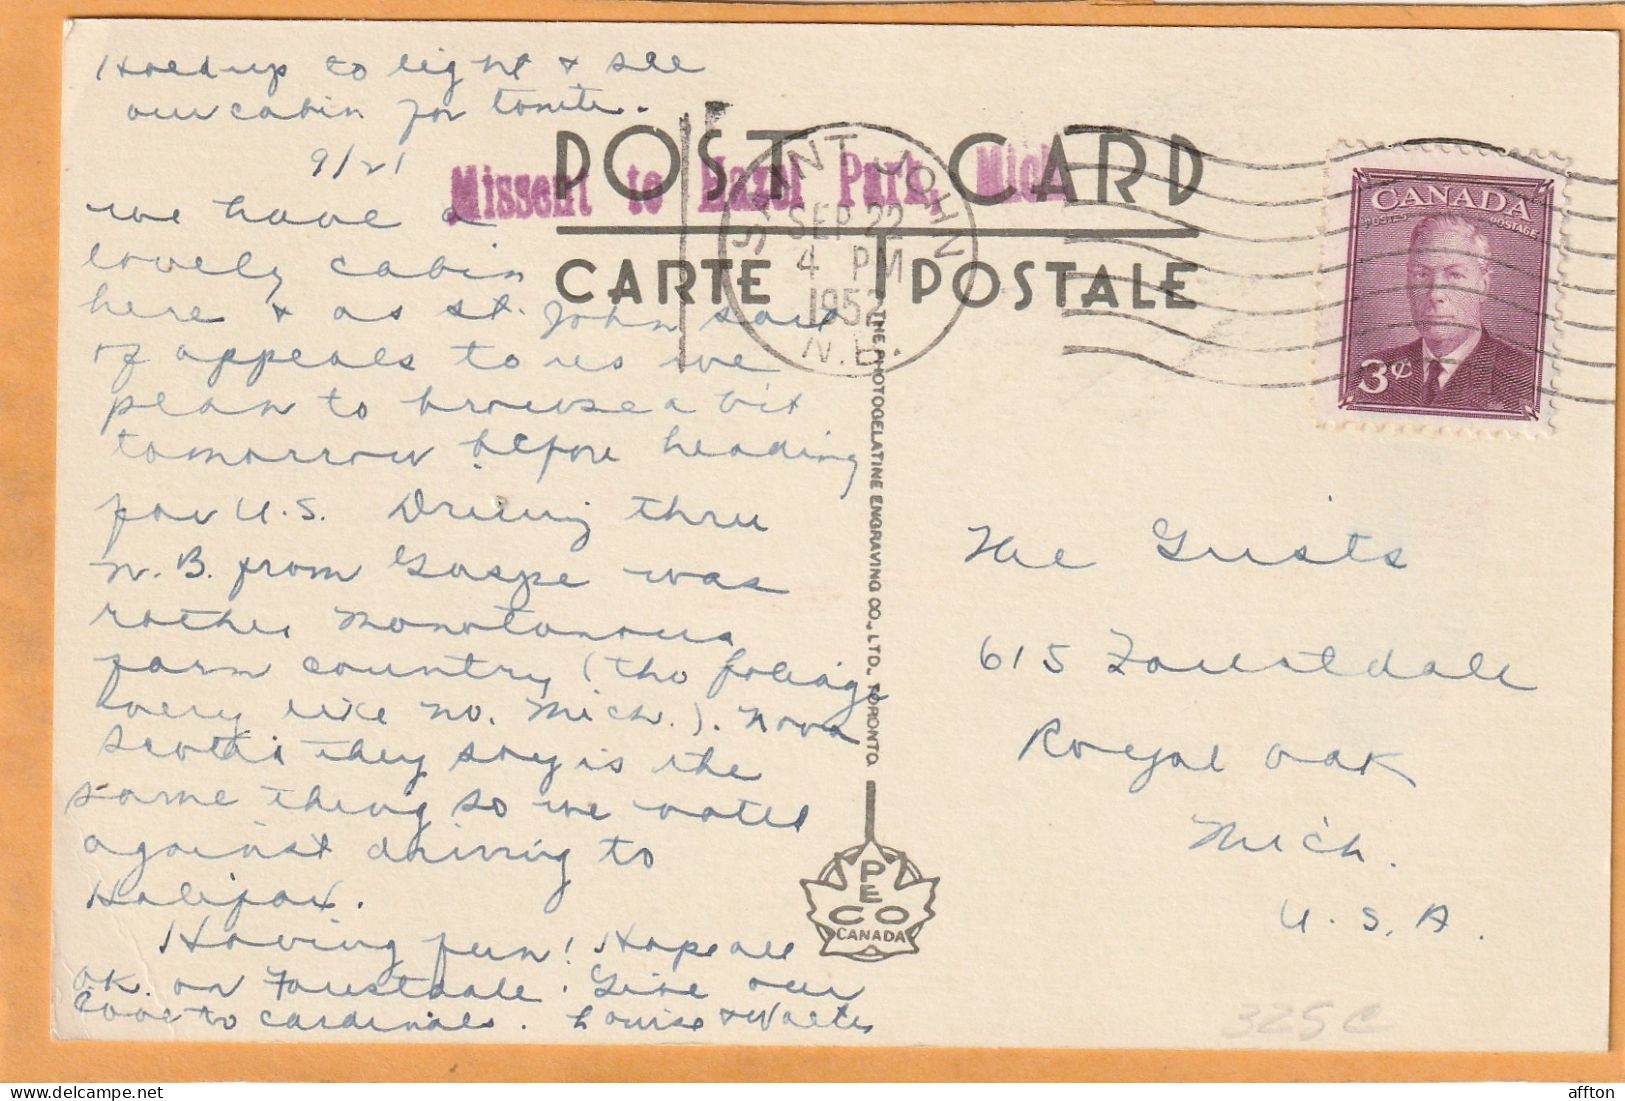 Hold up to light & see
our cabin for tonite.
9/21
we have a
lovely cabin
here & as St. John sort
of appeals to us we
plan to browse a bit
tomorrow before heading
for U.S. Driving thru
N.B. from Gaspe was
rather monotonous
farm country (tho foliage
very like No. Mich.). Nova
Scotia they say is the
same thing so we voted
against driving to
Halifax.
Having fun! Hope all
o.k. on Forestdale. Give our
love to cardinals. Louise & Walter
POST CARD
CARTE POSTALE
Missent to Hazel Park, Mich
SAINT JOHN
SEP 22
4 PM
1952
N.B.
CANADA
POSTES POSTAGE
3¢
THE PHOTOGELATINE ENGRAVING CO., LTD., TORONTO
PECO
CANADA
The Gusts
615 Forestdale
Royal Oak
Mich.
U.S.A.
325C
affton